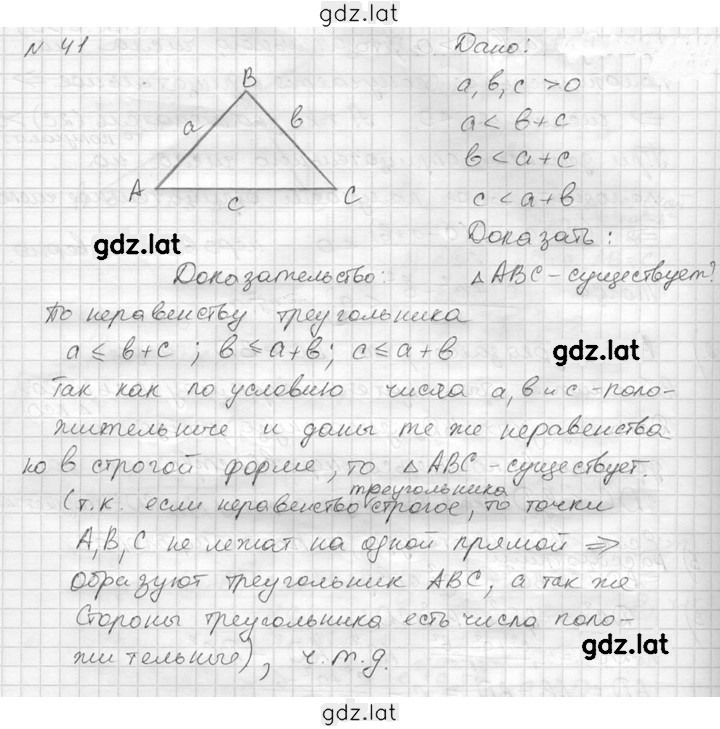 gdz.lat
N 41
Дано:
B
a, в, c > 0
a
в
a < в + c
в < a + c
A
c
C
c < a + в
gdz.lat
Доказать:
Доказательство:
△ABC - существует?
По неравенству треугольника
a ≤ в + c ; в ≤ a + в ; c ≤ a + в
gdz.lat
Так как по условию числа a, в и c - поло-
жительные и даны те же неравенства
но в строгой форме, то △ABC - существует.
треугольника
(т.к. если неравенство строгое, то точки
A, B, C не лежат на одной прямой ⇒
образуют треугольник ABC, а так же
Стороны треугольника есть числа поло-
gdz.lat
жительные), ч.т.д.
gdz.lat